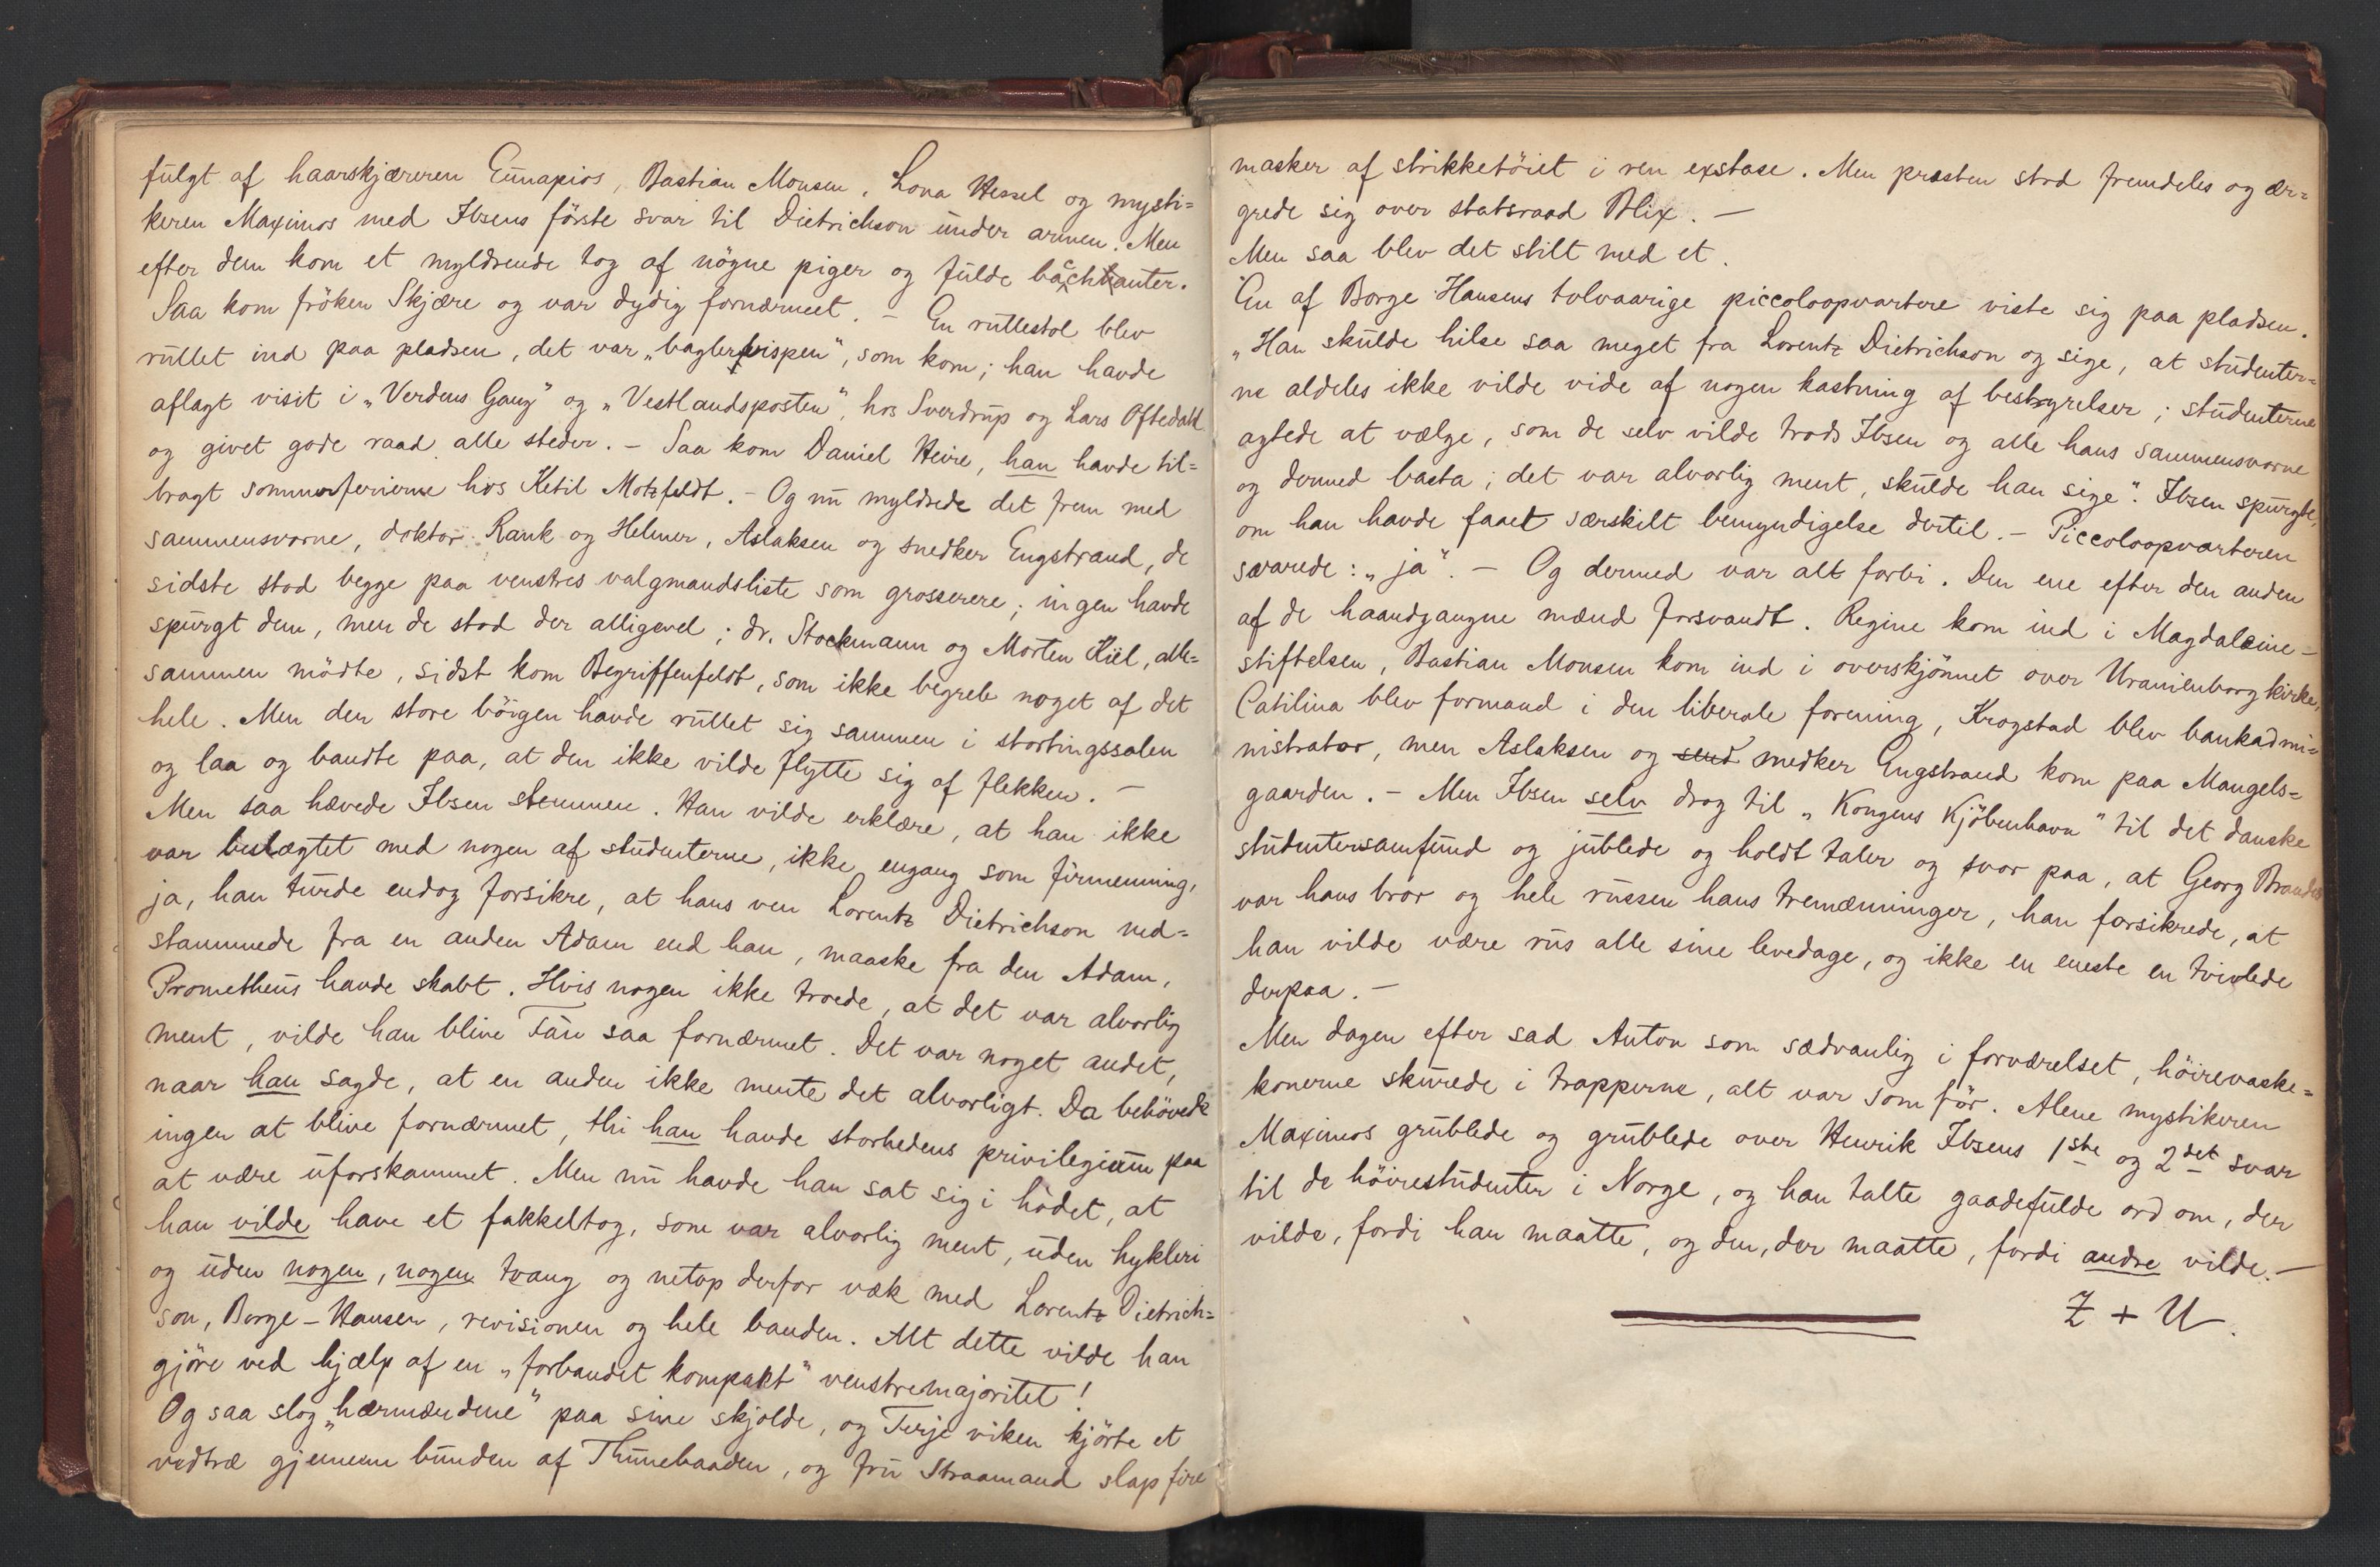 fulgt af haarskjæreren Eunapios, Bastian Monsen, Lona Hessel og mysti=
keren Maximos med Ibsens förste svar til Dietrichson under armen. Men
efter dem kom et myldrende tog af nögne piger og fulde bacchanter.
Saa kom fröken Skjære og var dydig fornærmet. – En rullestol blev
rullet ind paa pladsen, det var „baglerbispen", som kom; han havde
aflagt visit i „Verdens Gang" og „Vestlandsposten", hos Sverdrup og Lars Oftedahl
og givet gode raad alle steder. – Saa kom Daniel Heire, han havde til=
bragt sommerferierne hos Ketil Motzfeldt. – Og nu myldrede det frem med
sammensvorne, doktor Rank og Helmer, Aslaksen og snedker Engstrand, de
sidste stod begge paa venstres valgmandsliste som grosserere; ingen havde
spurgt dem, men de stod der alligevel; dr. Stockmann og Morten Kiil, alle=
sammen mödte, sidst kom Begriffenfeldt, som ikke begreb noget af det
hele. Men den store böigen havde rullet sig sammen i stortingssalen
og laa og bandte paa, at den ikke vilde flytte sig af flekken. –
Men saa hævede Ibsen stemmen. Han vilde erklære, at han ikke
var beslægtet med nogen af studenterne, ikke engang som firmenning,
ja, han turde endog forsikre, at hans ven Lorentz Dietrichson ned=
stammede fra en anden Adam end han, maaske fra den Adam,
Prometheus havde skabt. Hvis nogen ikke troede, at det var alvorlig
ment, vilde han blive saa fornærmet. Det var noget andet,
naar han sagde, at en anden ikke mente det alvorligt. Da behövede
ingen at blive fornærmet, thi han havde storhedens privilegium paa
at være uforskammet. Men nu havde han sat sig i hodet, at
han vilde have et fakkeltog, som var alvorlig ment, uden hykleri
og uden nogen, nogen tvang og netop derfor væk med Lorentz Dietrich=
son, Borge-Hansen, revisionen og hele banden. Alt dette vilde han
gjöre ved hjælp af en „forbandet kompakt" venstremajoritet!
Og saa slog „hærmændene" paa sine skjolde, og Terje viken kjörte et
vedtræ gjennem bunden af Thunebaaden, og fru Straamand slap fire
masker af strikketöiet i ren exstase. Men præsten stod fremdeles og ær=
grede sig over statsraad Blix. –
Men saa blev det stilt med et.
En af Borge Hansens tolvaarige piccoloopvartere viste sig paa pladsen.
„Han skulde hilse saa meget fra Lorentz Dietrichson og sige, at studenter=
ne aldeles ikke vilde vide af nogen kastning af bestyrelser; studenterne
agtede at vælge, som de selv vilde trods Ibsen og alle hans sammensvorne
og dermed basta; det var alvorlig ment, skulde han sige". Ibsen spurgte,
om han havde faaet særskilt bemyndigelse dertil. – Piccoloopvarteren
svarede: „ja". – Og dermed var alt forbi. Den ene efter den anden
af de haandgangne mænd forsvandt. Regine kom ind i Magdalene-
stiftelsen, Bastian Monsen kom ind i overskjönnet over Uranienborg kirke,
Catilina blev formand i den liberale forening, Krogstad blev bankadmi=
nistrator, men Aslaksen og send snedker Engstrand kom paa Mangels=
gaarden. – Men Ibsen selv drog til „Kongens Kjöbenhavn" til det danske
studentersamfund og jublede og holdt taler og svor paa, at Georg Brandes
var hans bror og hele russen hans tremænninger, han forsikrede, at
han vilde være rus alle sine levedage, og ikke en eneste en tvivlede
derpaa. –
Men dagen efter sad Anton som sædvanlig i forværelset, höirevaske=
konerne skurede i trapperne, alt var som för. Alene mystikeren
Maximos grublede og grublede over Henrik Ibsens 1ste og 2det svar
til de höirestudenter i Norge, og han talte gaadefulde ord om, der
vilde, fordi han maatte, og den, der maatte, fordi andre vilde. –
Z + U.